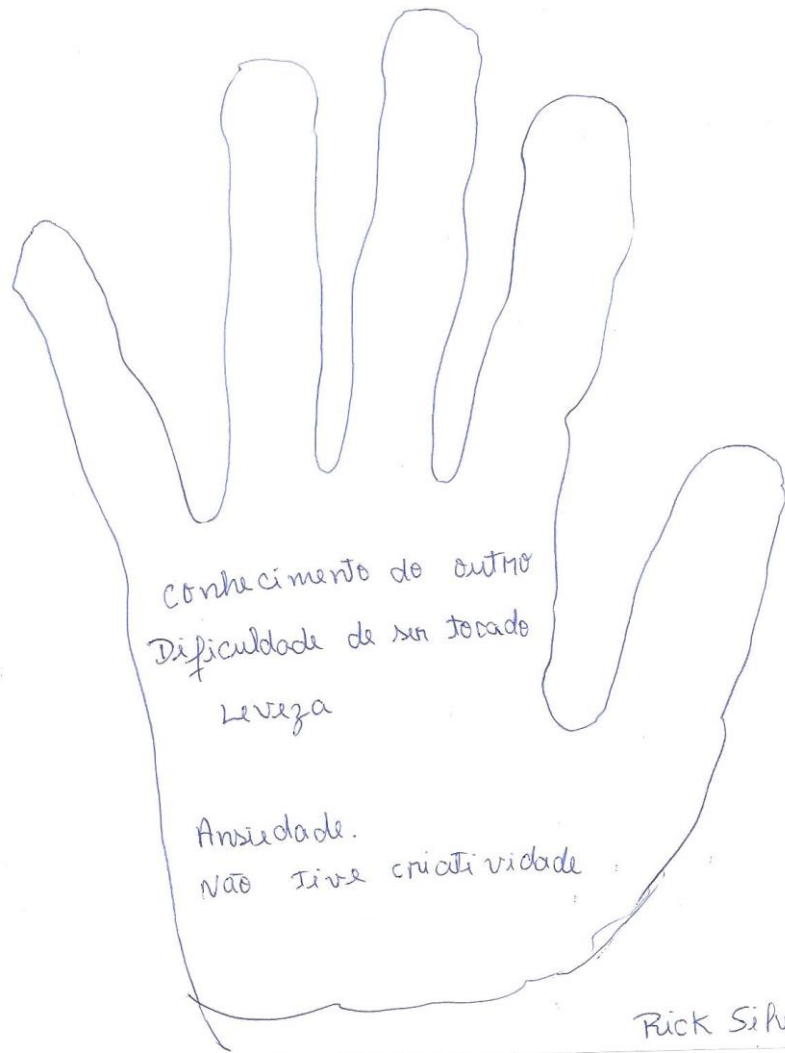 conhecimento do outro
Dificuldade de ser tocado
Leveza
Ansiedade.
Não tive criatividade
Rick